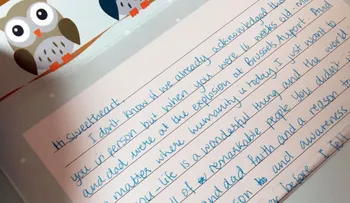 Hi Sweetheart,
I don't know if we already acknowledged this
you in person but when you were 16 weeks old, m
and dad were at the explosion at Brussels Airport. And
matter where humanity is today I just want to
- life is a wonderful thing and the world
full of remarkable people. You didn't
and dad faith and a reason to
to and awareness
before I